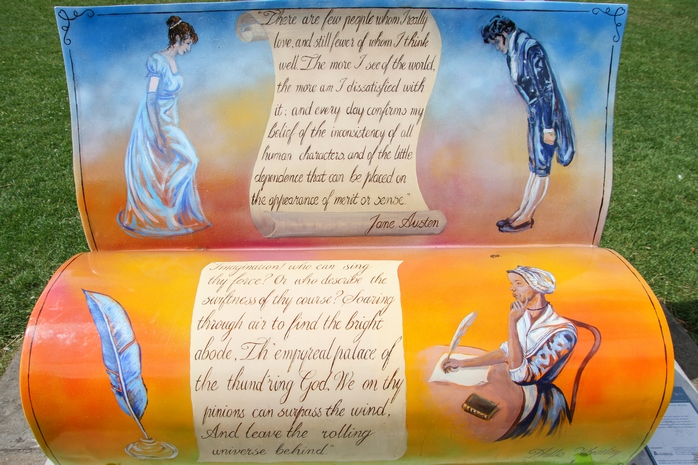 "There are few people whom I really
love, and still fewer of whom I think
well. The more I see of the world,
the more am I dissatisfied with
it; and every day confirms my
belief of the inconsistency of all
human characters, and of the little
dependence that can be placed on
the appearance of merit or sense."
Jane Austen
Imagination! who can sing
thy force? Or who describe the
swiftness of thy course? Soaring
through air to find the bright
abode, Th'empyreal palace of
the thund'ring God, We on thy
pinions can surpass the wind,
And leave the rolling
universe behind"